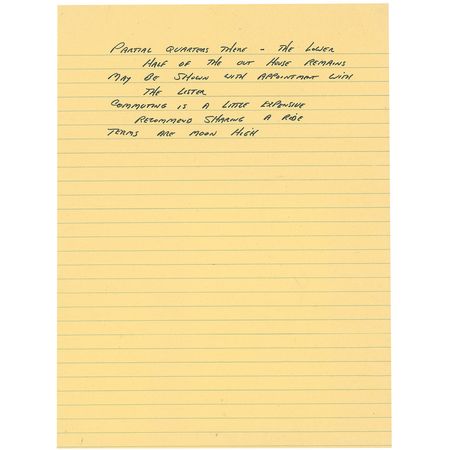 PARTIAL QUARTERS THERE - THE LOWER
HALF OF THE OUT HOUSE REMAINS
MAY BE SHOWN WITH APPOINTMENT WITH
THE LISTER
COMMUTING IS A LITTLE EXPENSIVE
RECOMMEND SHARING A RIDE
TERMS ARE MOON HIGH